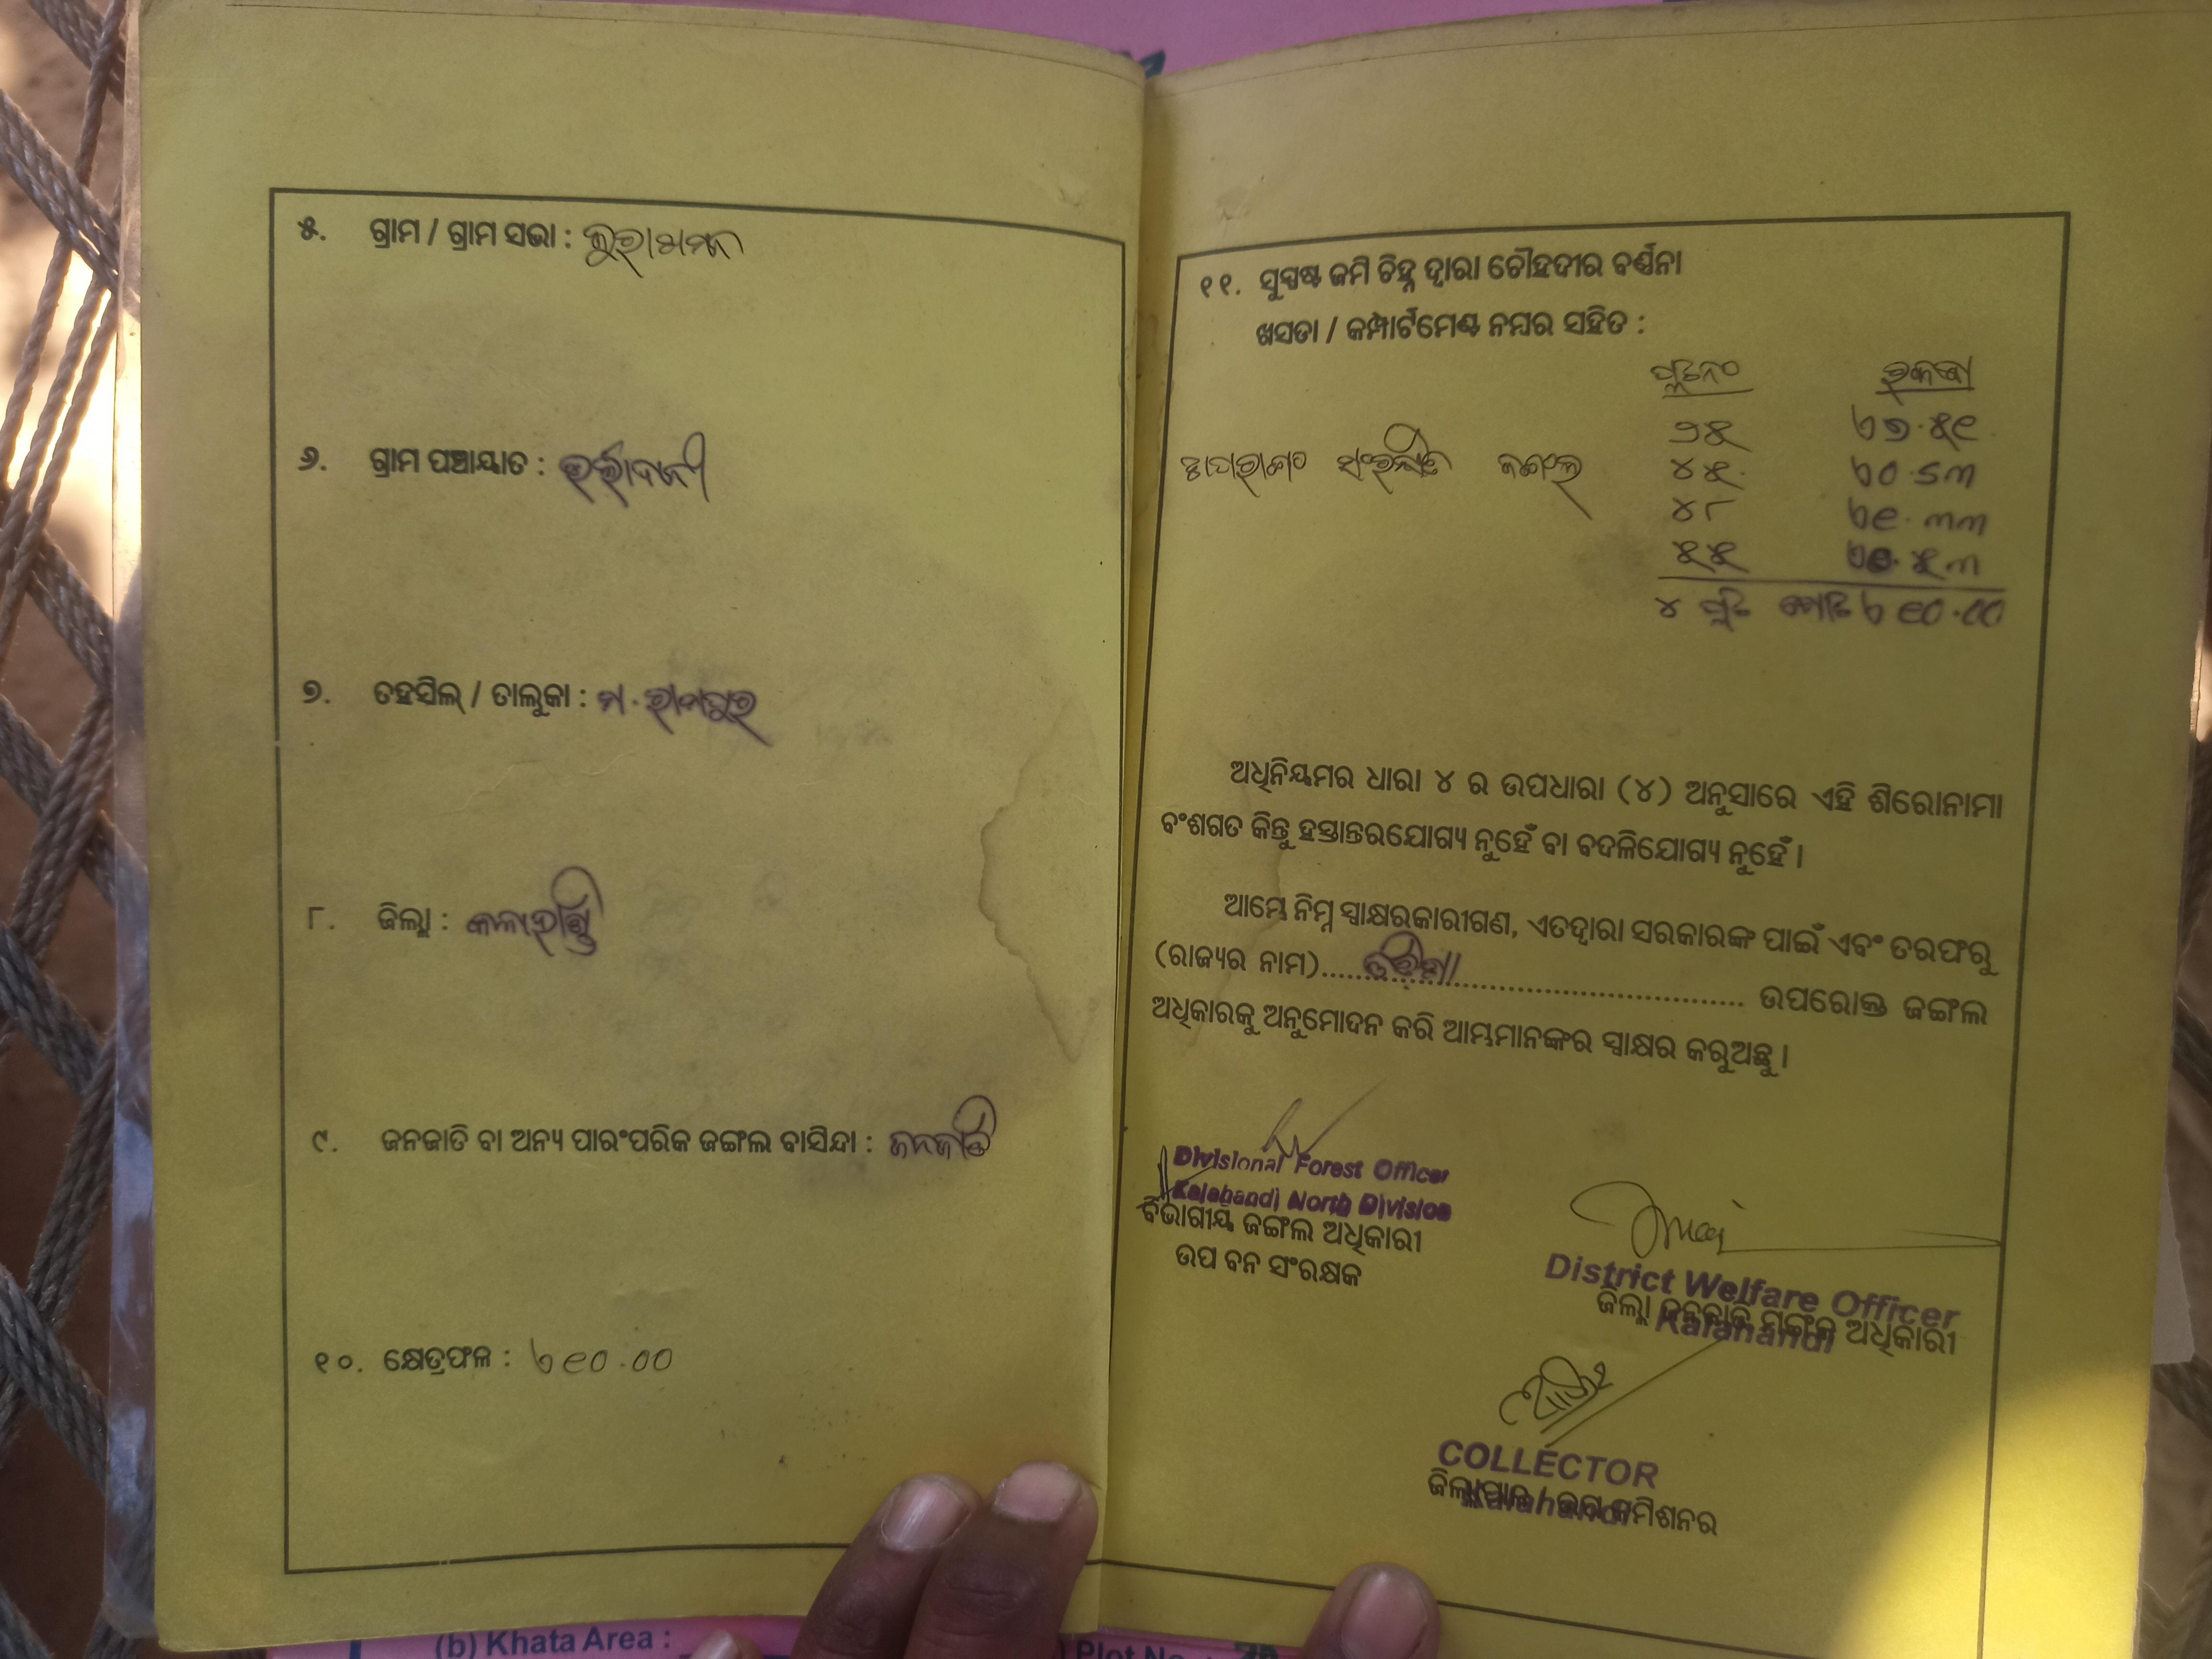 ୫. ଗ୍ରାମ / ଗ୍ରାମ ସଭା :
୬. ଗ୍ରାମ ପଞ୍ଚାୟାତ :
୭. ତହସିଲ୍ / ତାଲୁକା : ମ. ରାମପୁର
୮. ଜିଲ୍ଲା : କଳାହାଣ୍ଡି
୯. ଜନଜାତି ବା ଅନ୍ୟ ପାରଂପରିକ ଜଙ୍ଗଲ ବାସିନ୍ଦା : ଜନଜାତି
୧୦. କ୍ଷେତ୍ରଫଳ : ୭୧୦.୦୦
୧୧. ସୁସ୍ପଷ୍ଟ ଜମି ଚିହ୍ନ ଦ୍ବାରା ଚୌହଦୀର ବର୍ଣ୍ଣନା
ଖସଡା / କମ୍ପାର୍ଟମେଣ୍ଟ ନମ୍ବର ସହିତ :
ପ୍ଲଟନଂ ରକବା
ସଂରକ୍ଷିତ ଜଙ୍ଗଲ
୪୫
୪୮
୫୫
୪ ପ୍ଲଟ
ଅଧିନିୟମର ଧାରା ୪ ର ଉପଧାରା (୪) ଅନୁସାରେ ଏହି ଶିରୋନାମା
ବଂଶଗତ କିନ୍ତୁ ହସ୍ତାନ୍ତରଯୋଗ୍ୟ ନୁହେଁ ବା ବଦଳିଯୋଗ୍ୟ ନୁହେଁ ।
ଆମ୍ଭେ ନିମ୍ନ ସ୍ୱାକ୍ଷରକାରୀଗଣ, ଏତଦ୍ୱାରା ସରକାରଙ୍କ ପାଇଁ ଏବଂ ତରଫରୁ
(ରାଜ୍ୟର ନାମ)..... ଓଡ଼ିଶା ..... ଉପରୋକ୍ତ ଜଙ୍ଗଲ
ଅଧିକାରକୁ ଅନୁମୋଦନ କରି ଆମ୍ଭମାନଙ୍କର ସ୍ୱାକ୍ଷର କରୁଅଛୁ ।
Divisional Forest Officer
Kalahandi North Division
ବିଭାଗୀୟ ଜଙ୍ଗଲ ଅଧିକାରୀ
ଉପ ବନ ସଂରକ୍ଷକ
District Welfare Officer
Kalahandi
ଜିଲ୍ଲା ଜନଜାତି ମଙ୍ଗଳ ଅଧିକାରୀ
COLLECTOR
Kalahandi
ଜିଲ୍ଲାପାଳ / ଉପ କମିଶନର
(b) Khata Area :
Plot No